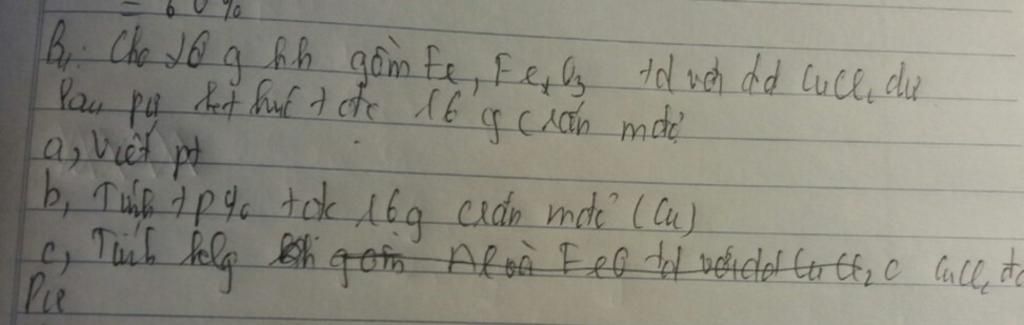 = 60%
B1: Cho 16 g hh gồm Fe, Fe2O3 td với dd CuCl2 dư
Sau pứ kết thúc ta đc 16 g crắn mđc
a, Viết pt
b, Tính tp % tdc 16g crắn mđc (Cu)
c, Tính klg gồm Al và FeO td với dd CuCl2 CuCl2 td
Pứ